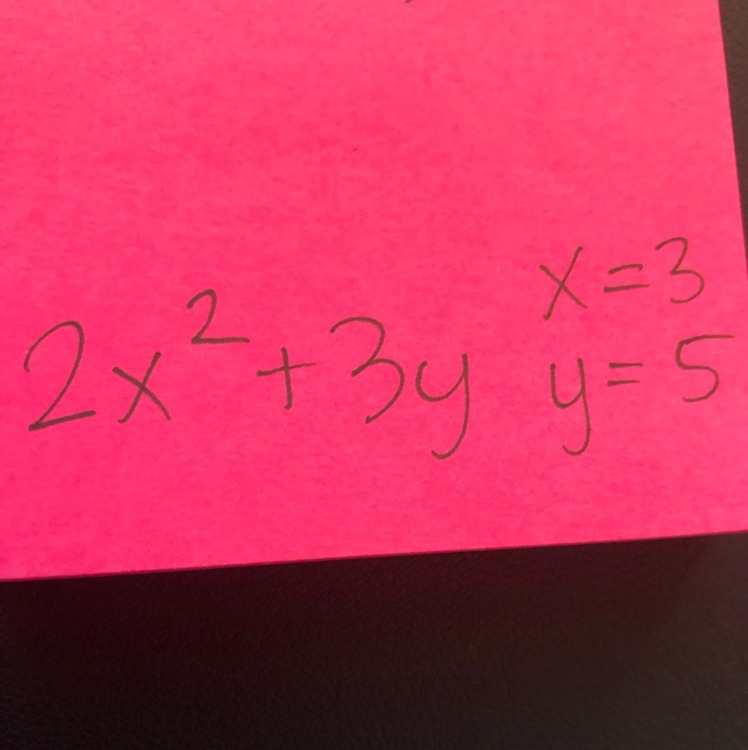 2x²+3y
x=3
y=5